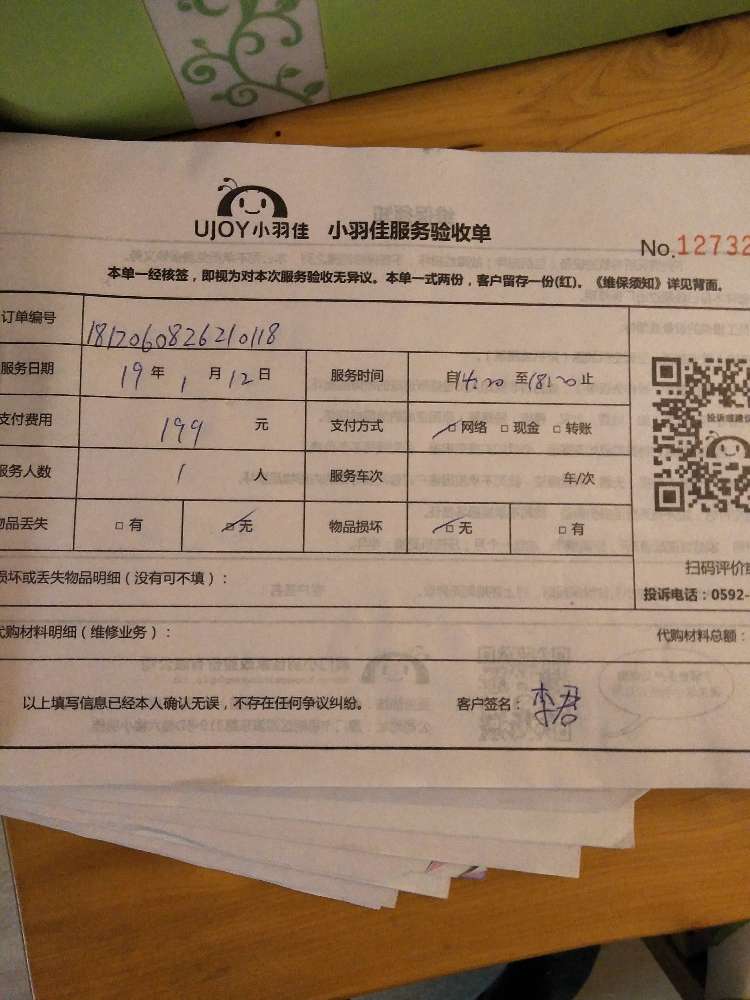 UJOY小羽佳 小羽佳服务验收单
No.12732
本单一经核签，即视为对本次服务验收无异议。本单一式两份，客户留存一份(红)。《维保须知》详见背面。
订单编号 1812060826210118
服务日期 19年1月12日 服务时间 自14:20至18:20止
支付费用 199 元 支付方式 □网络 □现金 □转账
服务人数 1 人 服务车次 车/次
物品丢失 □有 □无 物品损坏 □无 □有
投诉或建议
扫码评价
损坏或丢失物品明细（没有可不填）：
投诉电话：0592-
代购材料明细（维修业务）： 代购材料总额：
以上填写信息已经本人确认无误，不存在任何争议纠纷。 客户签名：李君